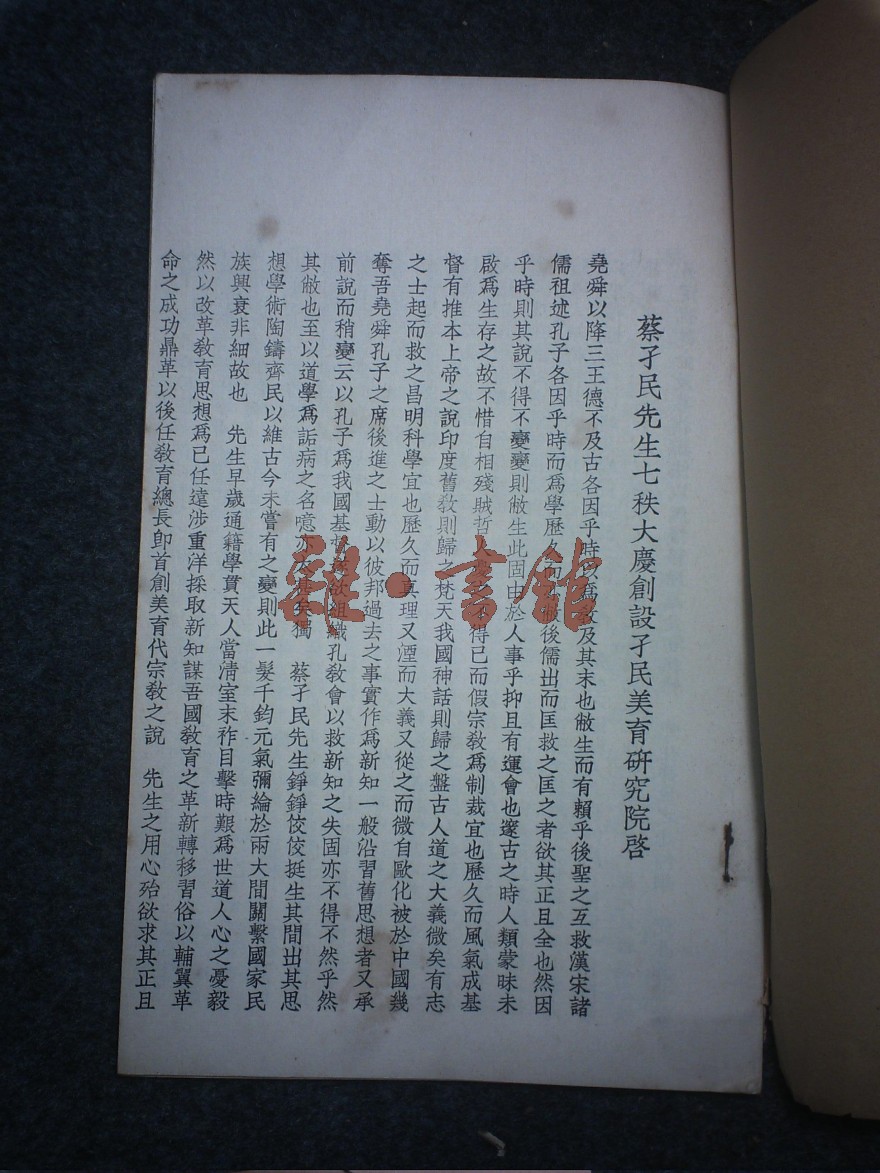 蔡孑民先生七秩大慶創設孑民美育硏究院啓
堯舜以降三王德不及古各因乎時以爲敎及其末也敝生而有賴乎後聖之互救漢宋諸
儒祖述孔子各因乎時而爲學歷久而敝後儒出而匡救之匡之者欲其正且全也然因
乎時則其說不得不變變則敝生此固由於人事乎抑且有運會也邃古之時人類蒙昧未
啟爲生存之故不惜自相殘賊哲人不得已而假宗敎爲制裁宜也歷久而風氣成基
督有推本上帝之說印度舊敎則歸之梵天我國神話則歸之盤古人道之大義微矣有志
之士起而救之昌明科學宜也歷久而眞理又湮而大義又從之而微自歐化被於中國幾
奪吾堯舜孔子之席後進之士動以彼邦過去之事實作爲新知一般沿習舊思想者又承
前說而稍變云以孔子爲我國基督遂欲組織孔敎會以救新知之失固亦不得不然乎然
其敝也至以道學爲詬病之名噫亦大甚矣獨 蔡孑民先生錚錚佼佼挺生其間出其思
想學術陶鑄齊民以維古今未嘗有之變則此一髮千鈞元氣彌綸於兩大間關繫國家民
族興衰非細故也 先生早歲通籍學貫天人當淸室末祚目擊時艱爲世道人心之憂毅
然以改革敎育思想爲已任遠涉重洋採取新知謀吾國敎育之革新轉移習俗以輔翼革
命之成功鼎革以後任敎育總長卽首創美育代宗敎之說 先生之用心殆欲求其正且
雜·書館